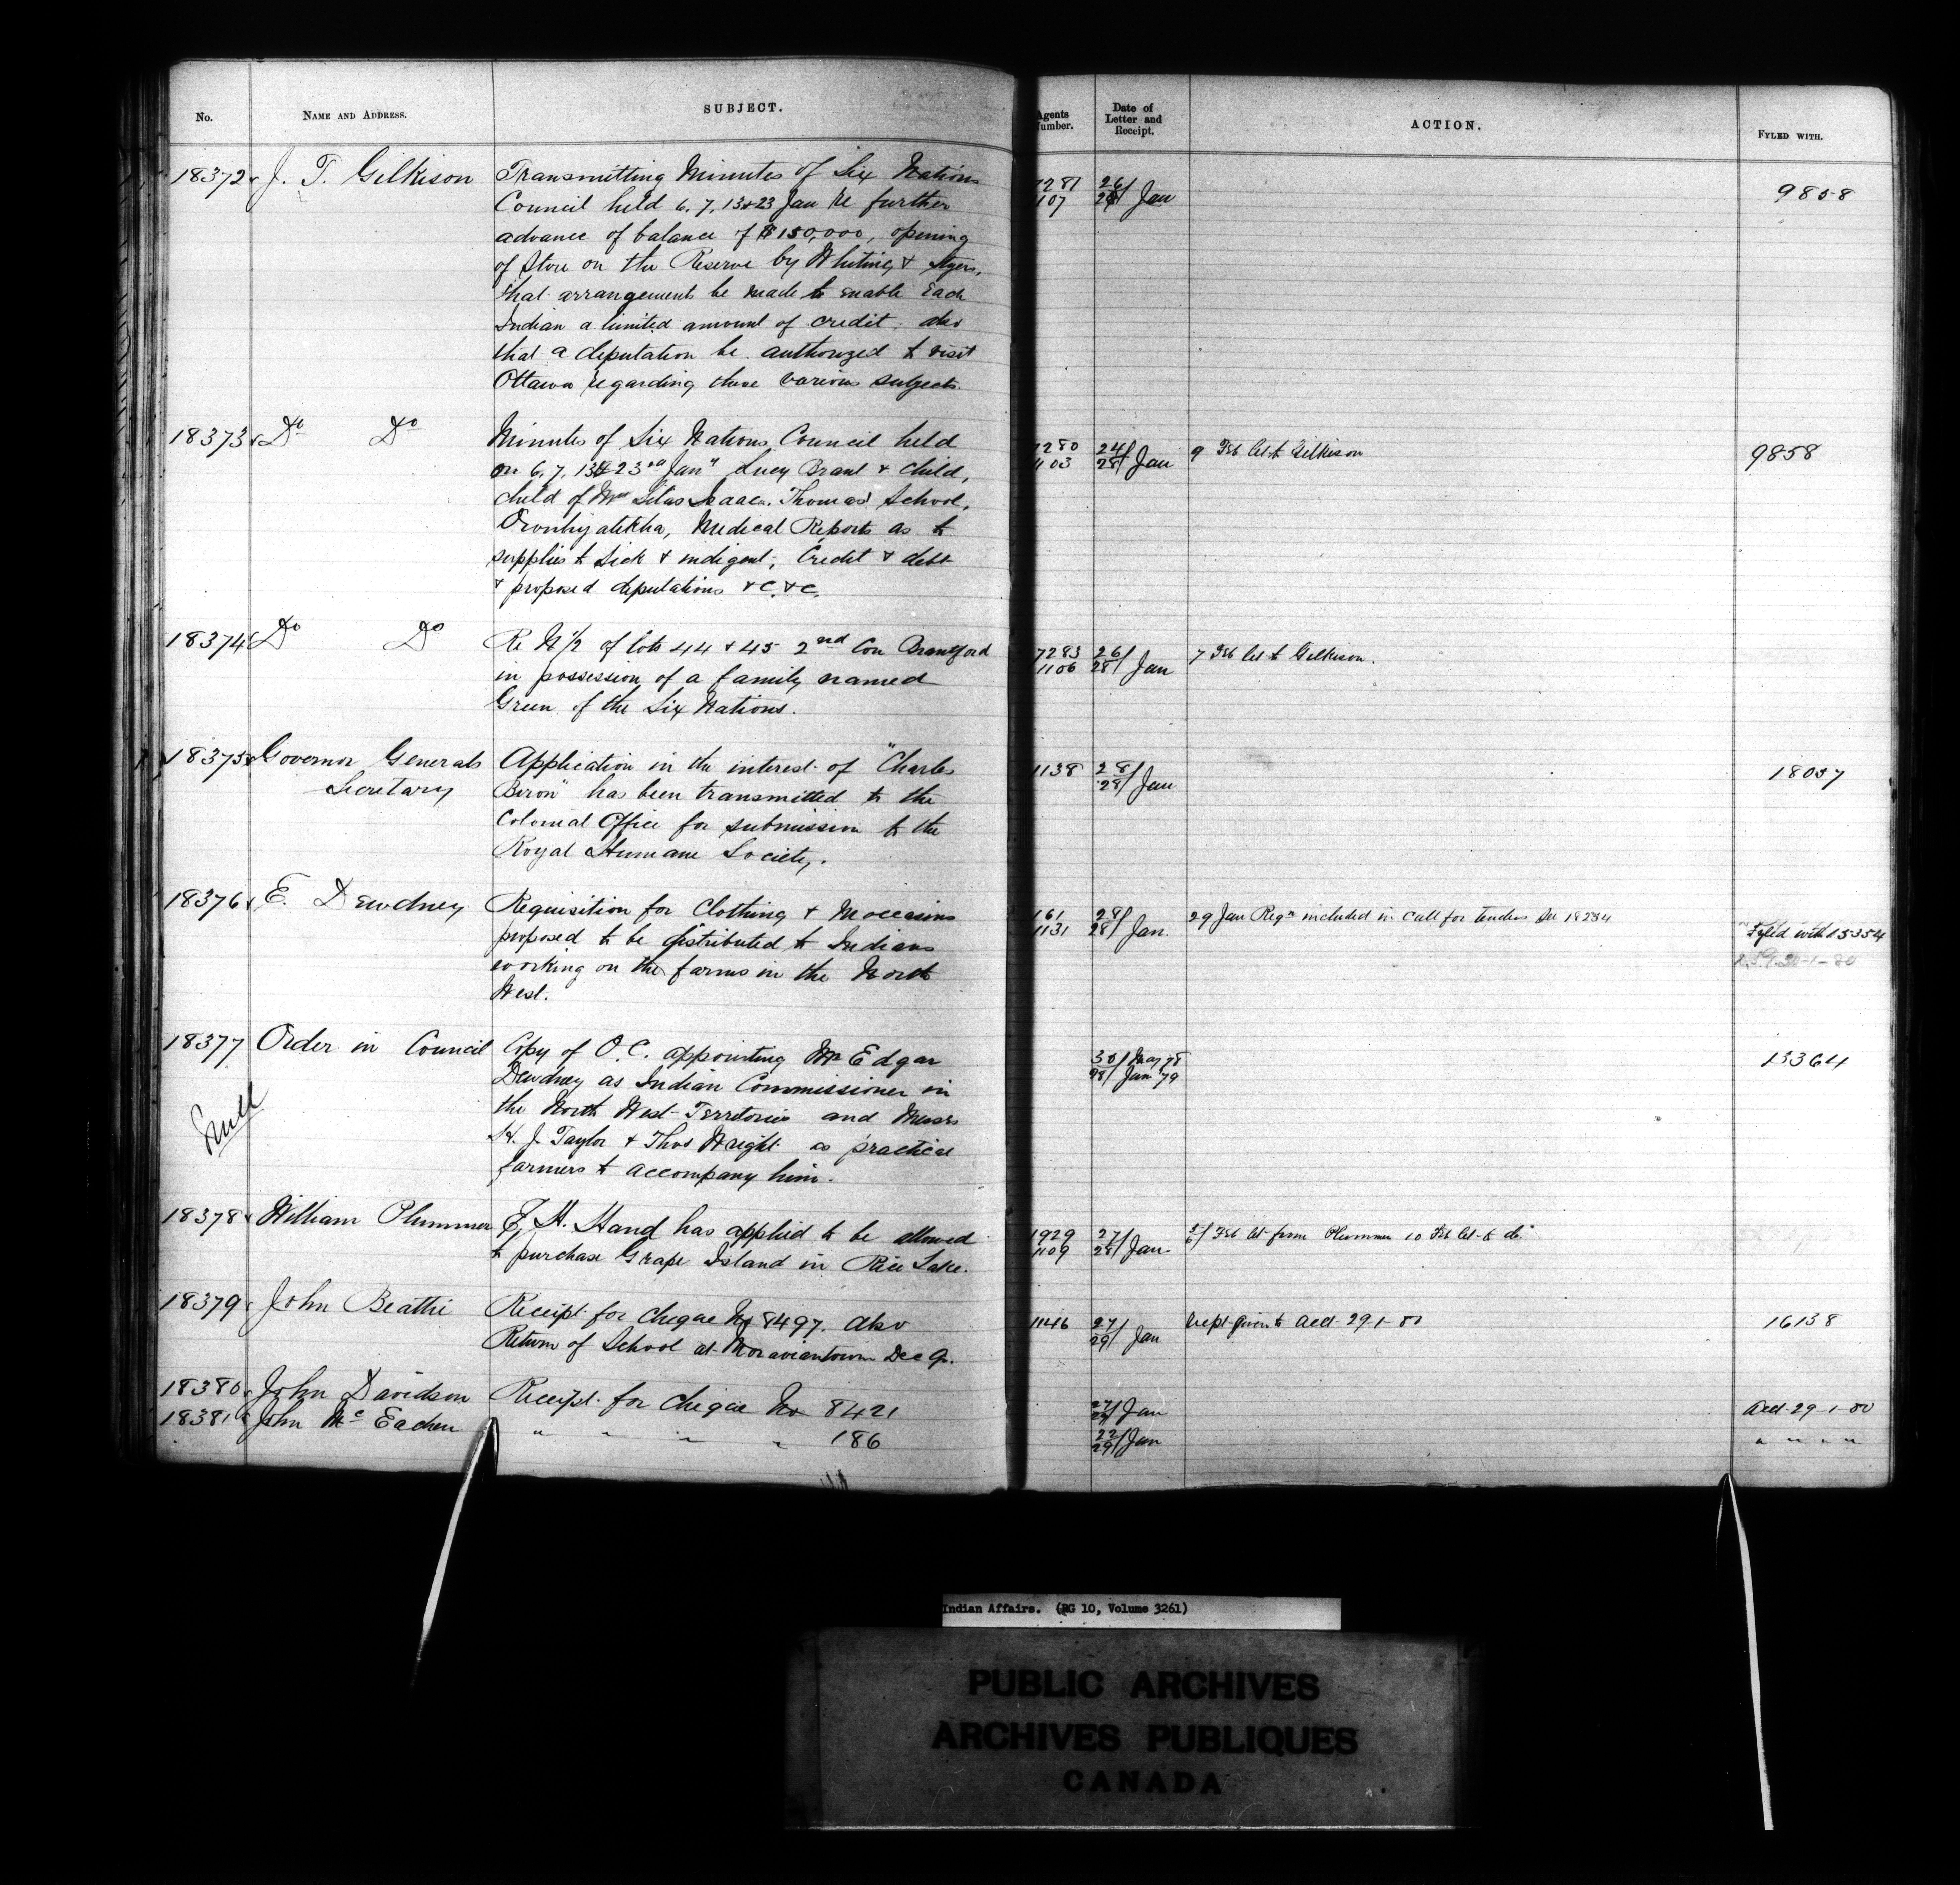 No. NAME AND ADDRESS. SUBJECT. Agents Number. Date of Letter and Receipt. ACTION. FYLED WITH.
18372 J. T. Gilkison Transmitting Minutes of Six Nations 7281 26/ 9858
Council held 6. 7. 13 & 23 Jan Re further 1107 28/ Jan
advance of balance of $150,000, opening
of Store on the Reserve by Whiting &
that arrangements be made to enable Each
Indian a limited amount of credit, also
that a deputation be authorized to visit
Ottawa regarding these various subjects.
18373 Do Do Minutes of Six Nations Council held 7280 24/ 9 Feb let to Gilkison 9858
on 6. 7. 13 & 23rd Jany Lucy Brant & child, 1103 28/ Jan
child of Mrs Silas Isaac. Thomas School,
Oronhyatekha, Medical Reports as to
supplies to Sick & indigent, Credit & debt
& proposed deputations &c. &c.
18374 Do Do Re N 1/2 of lots 44 & 45 2nd Con Brantford 7283 26/ 7 Feb let to Gilkison.
in possession of a family named 1106 28/ Jan
Green of the Six Nations.
18375 Governor Generals Application in the interest of "Charles 1138 28/ 18057
Secretary Biron" has been transmitted to the 28/ Jan
Colonial Office for submission to the
Royal Humane Society.
18376 E. Dewdney Requisition for Clothing & Moccasins 161 28/ 29 Jan Reqn included in call for tenders See 18234
proposed to be distributed to Indians 1131 28/ Jan. Fyled with 15354
working on the farms in the North 30-1-80
West.
18377 Order in Council Copy of O. C. appointing Mr Edgar 30/ May 78 13364
Dewdney as Indian Commissioner in 28/ Jan 79
the North West Territories and Messrs
H. J. Taylor & Thos Wright as practical
farmers to accompany him.
18378 William Plummer F. H. Hand has applied to be allowed 1929 27/ Feb let from Plummer 10 Feb let to do.
to purchase Grape Island in Rice Lake. 1109 28/ Jan.
18379 John Beattie Receipt for cheque No 8497. also 1146 27/ recpt given to acct 29-1-80 16138
Return of School at Moraviantown Dec Qr. 29/ Jan
18380 John Davidson Receipt for cheque No 8421 27/ Jan Acct 29-1-80
18381 John McEachern " " " " 186 22/29/ Jan " " " "
Indian Affairs. (RG 10, Volume 3261)
PUBLIC ARCHIVES
ARCHIVES PUBLIQUES
CANADA